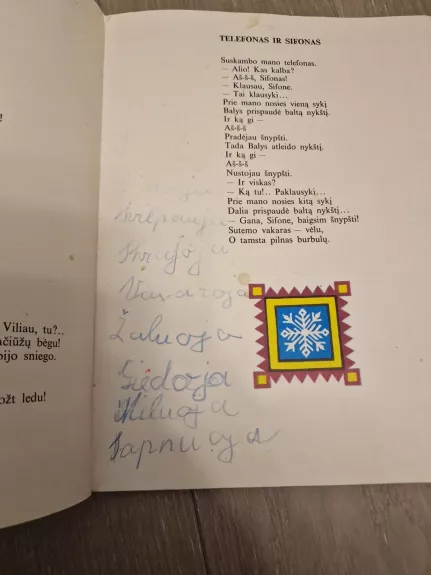 !
Viliau, tu?..
čiūžų bėgu!
bijo sniego.
ožt ledu!
TELEFONAS IR SIFONAS
Suskambo mano telefonas.
— Alio! Kas kalba?
— Aš-š-š, Sifonas!
— Klausau, Sifone.
— Tai klausyki...
Prie mano nosies vieną sykį
Balys prispaudė baltą nykštį.
Ir ką gi —
Aš-š-š
Pradėjau šnypšti.
Tada Balys atleido nykštį.
Ir ką gi —
Aš-š-š
Nustojau šnypšti.
— Ir viskas?
— Ką tu!.. Paklausyki...
Prie mano nosies kitą sykį
Dalia prispaudė baltą nykštį...
— Gana, Sifone, baigsim šnypšti!
Sutemo vakaras — vėlu,
O tamsta pilnas burbulų.
Vasaroja
Žaluoja
Giedoja
Miluoja
Sapnuoja